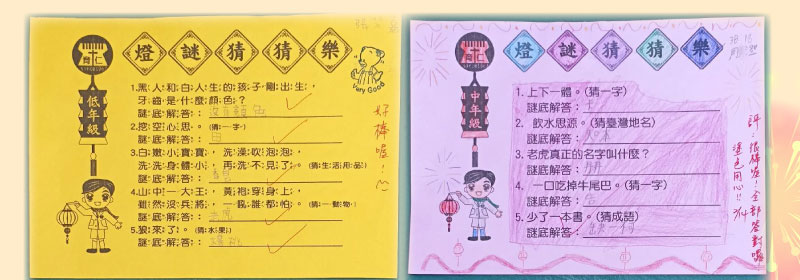 燈謎猜猜樂
育仁
低年級
Very Good
1.黑人和白人生的孩子剛出生，
牙齒是什麼顏色？
謎底解答：沒有顏色
2.挖空心思。（猜一字）
謎底解答：田
3.白嫩小寶寶，洗澡吹泡泡，
洗洗身體小，再洗不見了。（猜生活用品）
謎底解答：
4.山中一大王，黃袍穿身上，
雖然沒兵將，一親誰都怕。（猜一動物）
謎底解答：老虎
5.狼來了。（猜水果）
謎底解答：楊桃
好棒喔！
燈謎猜猜樂
育仁
中年級
1.上下一體。（猜一字）
謎底解答：卡
2. 飲水思源。（猜臺灣地名）
謎底解答：
3.老虎真正的名字叫什麼？
謎底解答：
4. 一口吃掉牛尾巴。（猜一字）
謎底解答：告
5.少了一本書。（猜成語）
謎底解答：缺一不可
評：很棒喔！全部答對喔！
塗色用心!!